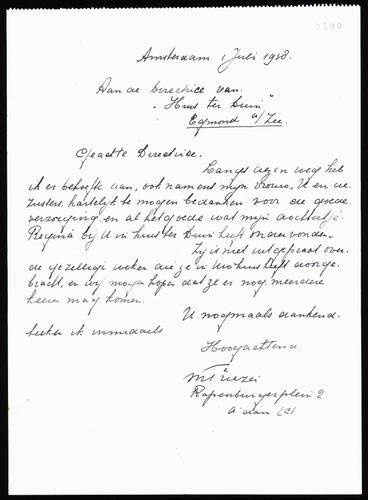 Amsterdam 1 Juli 1938.
Aan de Directrice van.
"Huis ter Duin"
Egmond a/Zee.
Geachte Directrice.
Langs dezen weg heb
ik er behoefte aan, ook namens mijn vrouw, U en de
zusters hartelijk te mogen bedanken voor de goede
verzorging en al het goede wat mijn dochtertje
Regina bij U in huis ter Duin heeft ondervonden.
Zij is niet uitgepraat over
de gezellige weken die ze in Uw huis heeft doorge-
bracht, en wij mogen hopen dat ze er nog meerdere
keeren mag komen.
U nogmaals dankend.
teeken ik inmiddels
Hoogachtend.
Rapenburgerplein 2
A'dam (C)